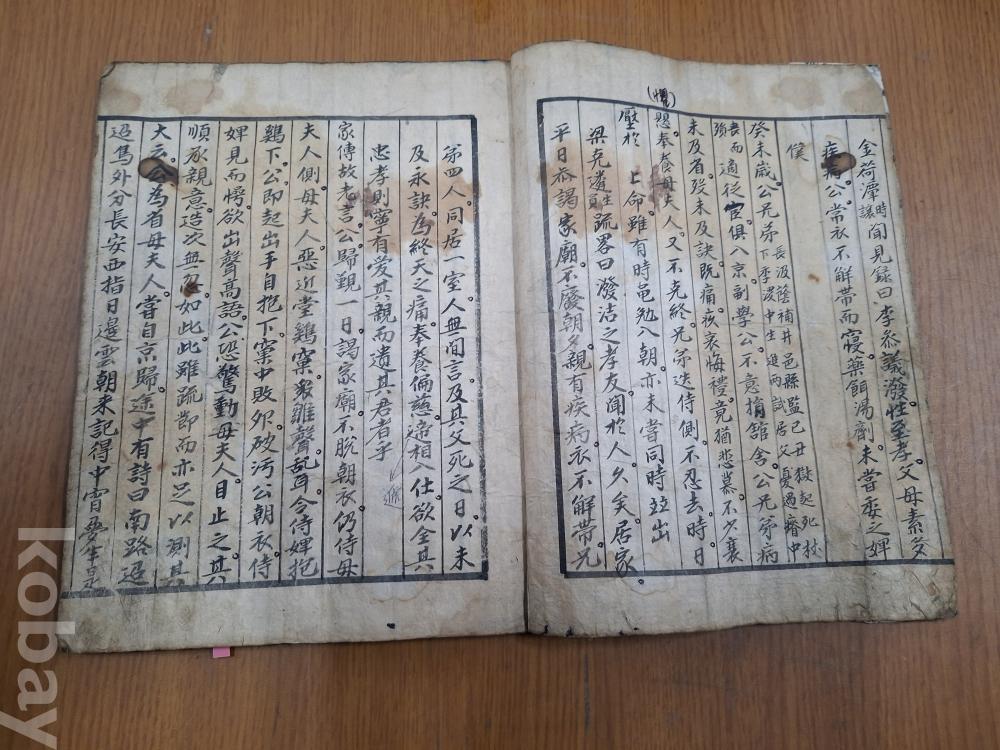 金荷潭時讓聞見錄曰李參議潑性至孝父母素多
疾病公常衣不解帶而寢藥餌湯劑未嘗委之婢
僕
癸未歲公兄弟長汲蔭補井邑縣監己丑獄起死杖下季洁中生進兩試居父憂過瘠中
喪而適從宦俱入京副學公不意捐舘舍公兄弟病
未及省歿未及訣旣痛疚哀悔禮竟猶悲慕不少衰
(懼)
懇奉養母夫人又不克終兄弟迭侍側不忍去時日
壓於上命雖有時黽勉入朝亦未嘗同時並出
梁克選員生疏畧曰潑洁之孝友聞於人久矣居家
平日忝謁家廟不廢朝夕親有疾病衣不解帶兄
弟四人同居一室人無間言及其父死之日以未
及永訣爲終天之痛奉養偏慈遞相入仕欲全其
遞
忠孝則寧有愛其親而遺其君者乎
家傳故老言公歸覲一日謁家廟不脫朝衣仍侍母
夫人側母夫人惡近堂鷄窠衆雛聲亂耳令侍婢抱
鷄下公卽起出手自抱下窠中敗卵破污公朝衣侍
婢見而愕欲出聲高語公恐驚動母夫人目止之其
順承親意造次無忽如此此雖疏節而亦足以測其
大云公爲省母夫人嘗自京歸途中有詩曰南路迢
迢馬外分長安西指日邊雲朝來記得中宵夢